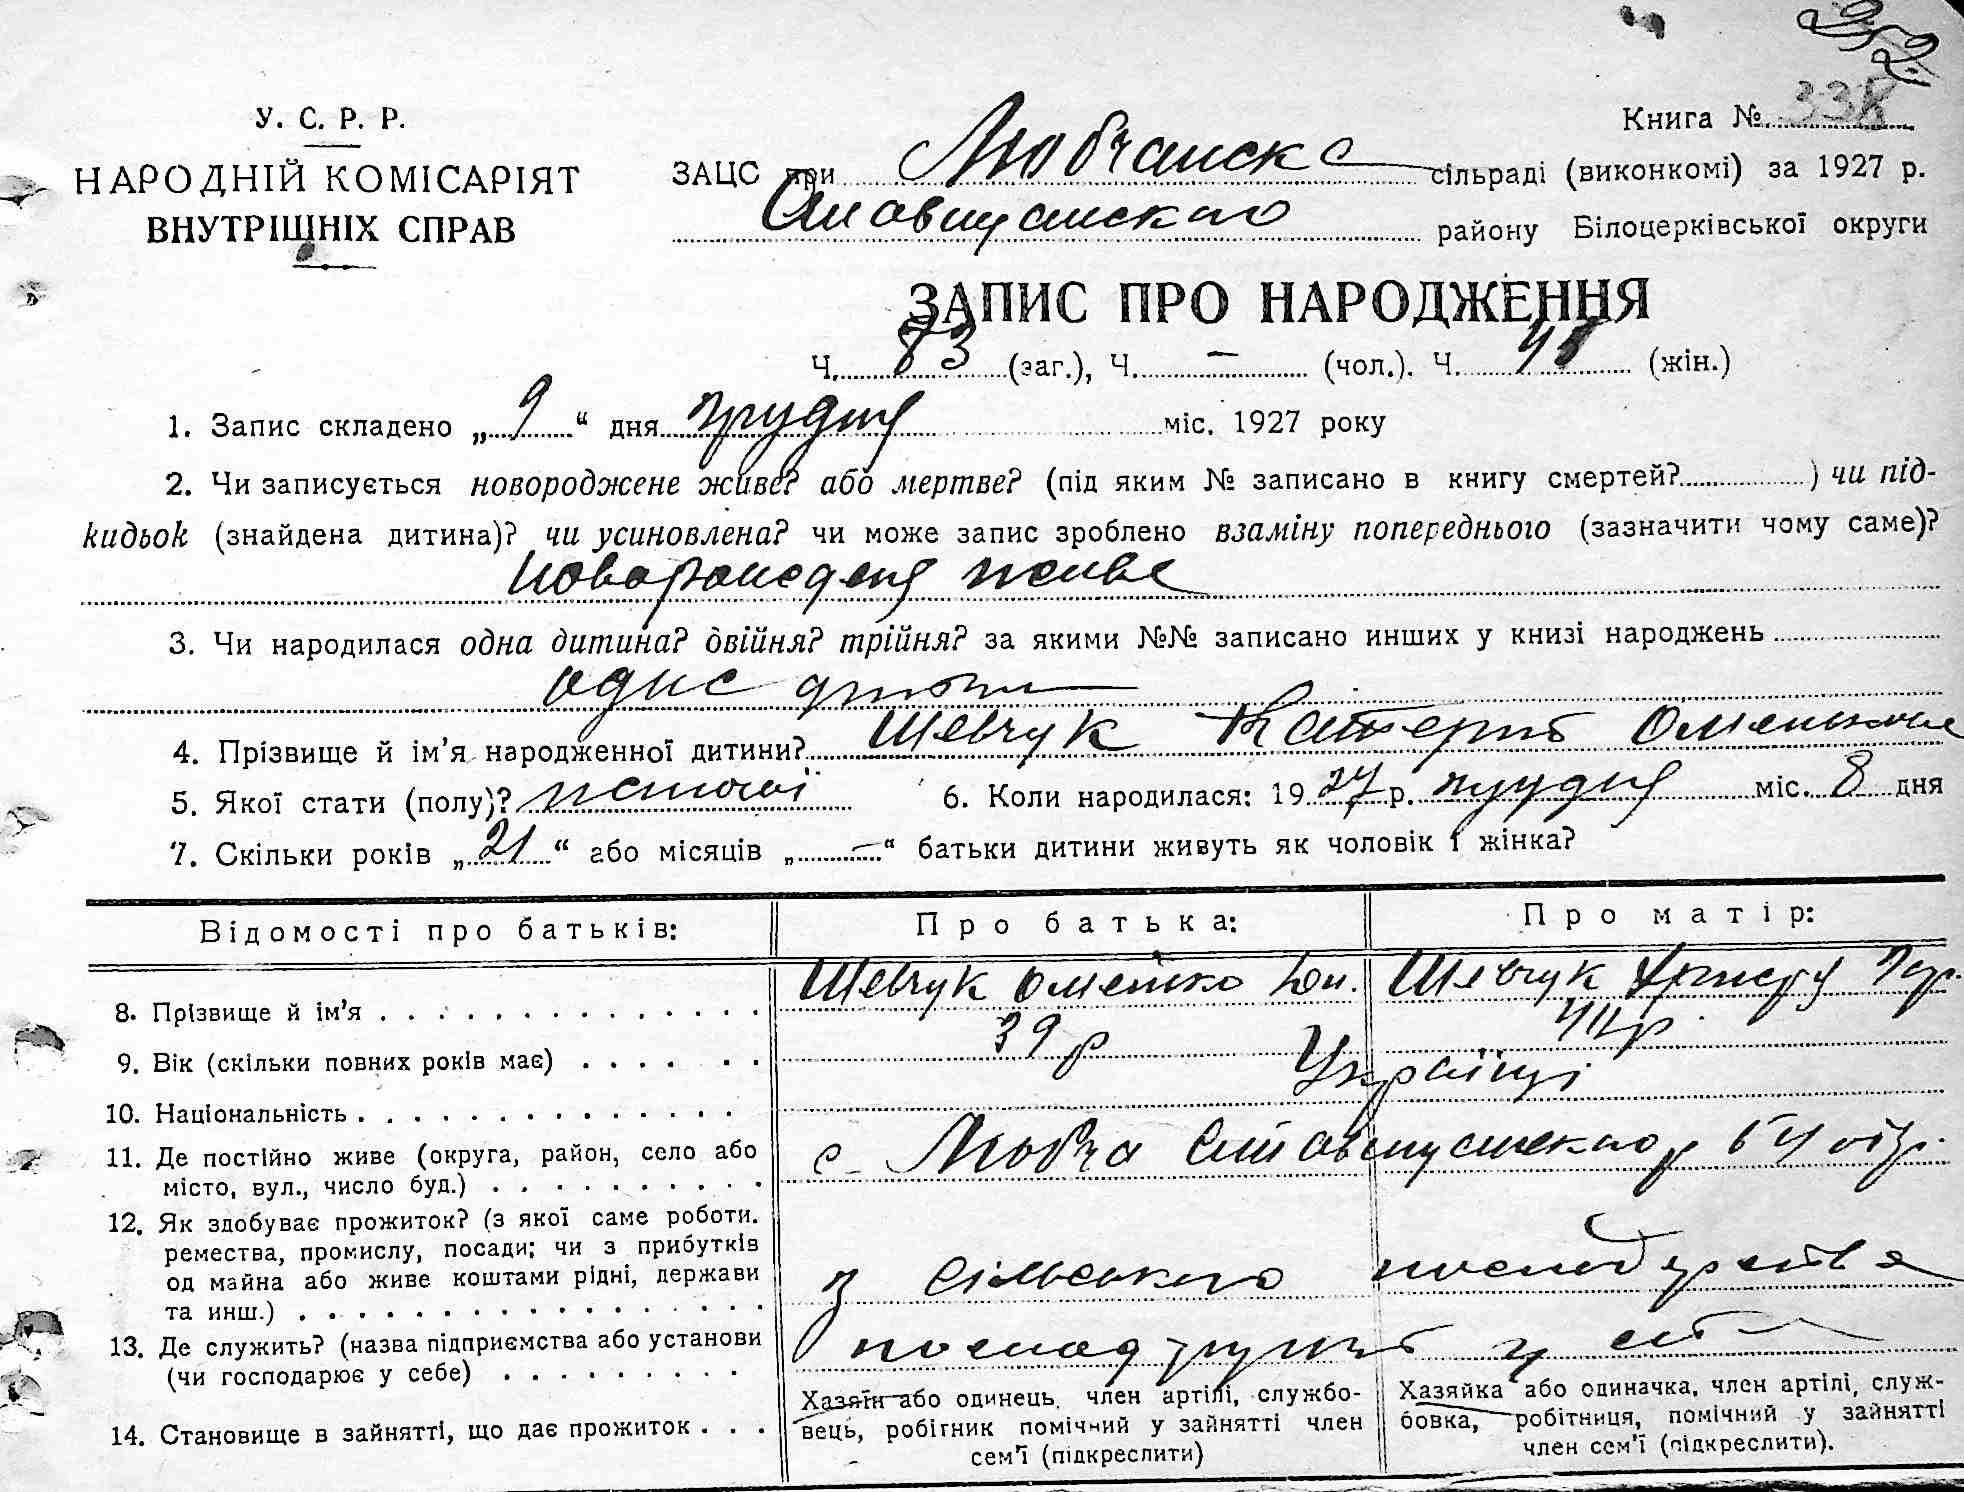 У. С. Р. Р.
НАРОДНІЙ КОМІСАРІЯТ
ВНУТРІШНІХ СПРАВ
Книга № 338
ЗАЦС при Любчанска сільраді (виконкомі) за 1927 р.
Ставищанского району Білоцерківської округи
ЗАПИС ПРО НАРОДЖЕННЯ
Ч. 83 (заг.), Ч. – (чол.). Ч. (жін.)
1. Запис складено „ 9 “ дня грудня міс. 1927 року
2. Чи записується новороджене живе? або мертве? (під яким № записано в книгу смертей? ) чи під-
кидьок (знайдена дитина)? чи усиновлена? чи може запис зроблено взаміну попереднього (зазначити чому саме)?
живе
3. Чи народилася одна дитина? двійня? трійня? за якими №№ записано инших у книзі народжень
4. Прізвище й ім'я народженної дитини? Шевчук
5. Якої стати (полу)? жіночої 6. Коли народилася: 19 27 р. грудня міс. 8 дня
7. Скільки років „ 21 “ або місяців „ – “ батьки дитини живуть як чоловік і жінка?
Відомості про батьків: Про батька: Про матір:
8. Прізвище й ім'я Шевчук Шевчук
9. Вік (скільки повних років має) 39 р
10. Національність Українці
11. Де постійно живе (округа, район, село або
місто, вул., число буд.) с. Любча Ставищанского р
12. Як здобуває прожиток? (з якої саме роботи.
ремества, промислу, посади; чи з прибутків
од майна або живе коштами рідні, держави
та инш.) з сільського господарства
13. Де служить? (назва підприємства або установи
(чи господарює у себе) у
14. Становище в зайнятті, що дає прожиток
Хазяїн або одинець, член артілі, службо-
вець, робігник помічний у зайнятті член
сем'ї (підкреслити)
Хазяйка або одиначка, член артілі, служ-
бовка, робітниця, помічний у зайнятті
член сем'ї (підкреслити).